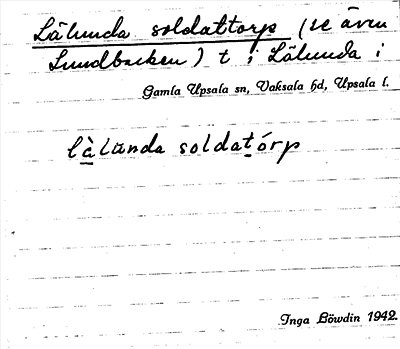 Lälunda soldattorp (se även
Lundbacken) t ; Lälunda i
Gamla Upsala sn, Vaksala hd, Upsala l.
làlŭnda soldatórp
Inga Löwdin 1942.